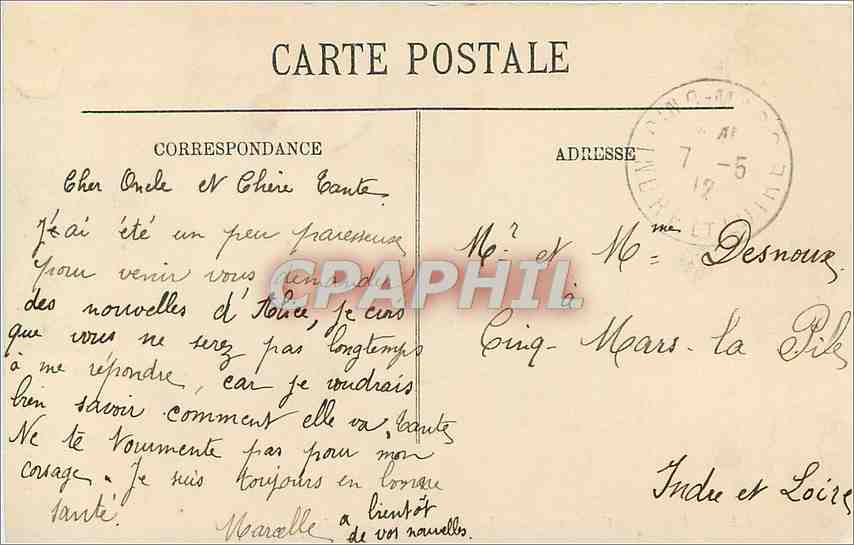 CARTE POSTALE
CORRESPONDANCE
Cher Oncle et Chère Tante.
J'ai été un peu paresseuse
pour venir vous demander
des nouvelles d'Alice, je crois
que vous ne serez pas longtemps
à me répondre, car je voudrais
bien savoir comment elle va, Tante
Ne te tourmente pas pour mon
corsage. Je suis toujours en bonne
santé.
Marcelle
a bientôt
de vos nouvelles.
ADRESSE
CINQ-MARS
INDRE ET LOIRE
7 -5
12
Mr et Mme Desnoux
à
Cinq-Mars-la Pile
Indre et Loire
CPAPHIL